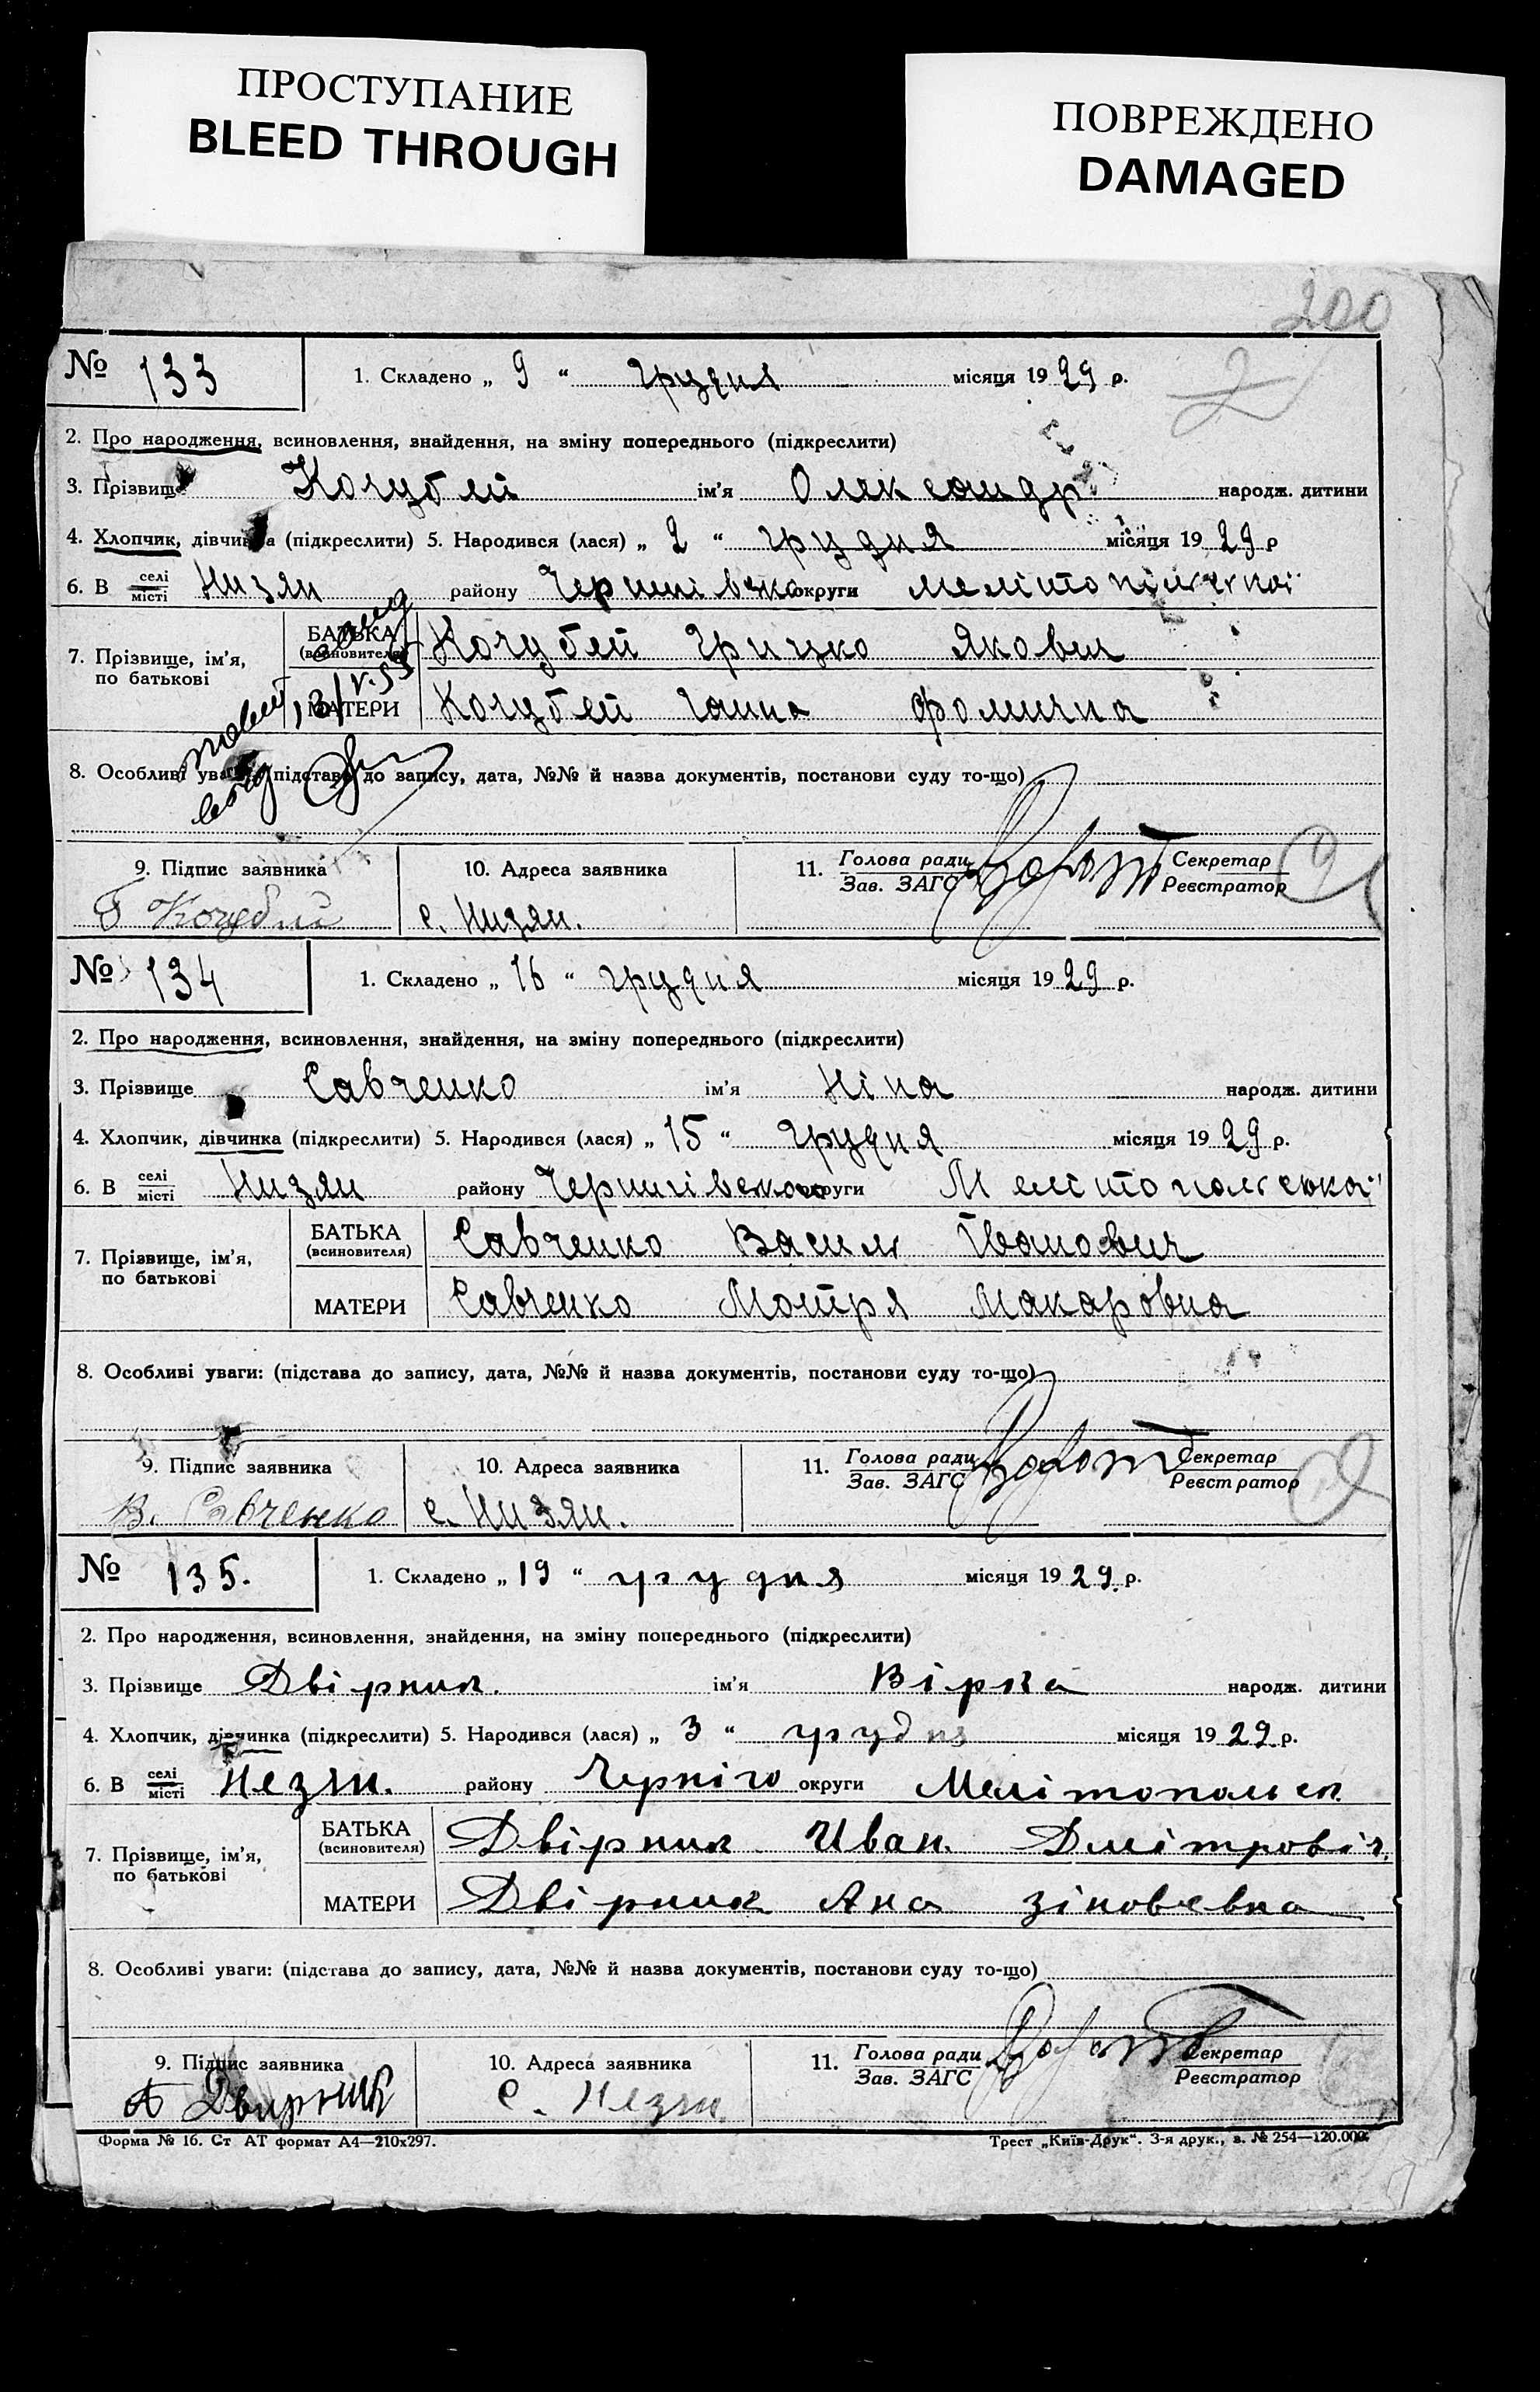 ПРОСТУПАНИЕ
BLEED THROUGH
ПОВРЕЖДЕНО
DAMAGED
200
№ 133 1. Складено „ 9 “ грудня місяця 1929 р.
2
2. Про народження, всиновлення, знайдення, на зміну попереднього (підкреслити)
3. Прізвище Кочубей ім'я Олександр народж. дитини
4. Хлопчик, дівчинка (підкреслити) 5. Народився (лася) „ 2 “ грудня місяця 1929 р
6. В селі/місті Низян району Чернигівско округи Мелітопільскої
7. Прізвище, ім'я, по батькові
БАТЬКА (всиновителя) Кочубей Грицко Якович
МАТЕРИ Кочубей Ганна Фомична
8. Особливі уваги: (підстава до запису, дата, №№ й назва документів, постанови суду то-що)
9. Підпис заявника 10. Адреса заявника 11. Голова ради/Зав. ЗАГС Секретар/Реєстратор
Г Кочубей с. Низян.
№ 134 1. Складено „ 16 “ грудня місяця 1929 р.
2. Про народження, всиновлення, знайдення, на зміну попереднього (підкреслити)
3. Прізвище Савченко ім'я Ніна народж. дитини
4. Хлопчик, дівчинка (підкреслити) 5. Народився (лася) „ 15 “ грудня місяця 1929 р.
6. В селі/місті Низян району Чернигівского округи Мелітопольскої
7. Прізвище, ім'я, по батькові
БАТЬКА (всиновителя) Савченко Василь Іванович
МАТЕРИ Савченко Мотря Макаровна
8. Особливі уваги: (підстава до запису, дата, №№ й назва документів, постанови суду то-що)
9. Підпис заявника 10. Адреса заявника 11. Голова ради/Зав. ЗАГС Секретар/Реєстратор
В. Савченко с. Низян.
№ 135. 1. Складено „ 19 “ грудня місяця 1929. р.
2. Про народження, всиновлення, знайдення, на зміну попереднього (підкреслити)
3. Прізвище Двірник. ім'я Вірка народж. дитини
4. Хлопчик, дівчинка (підкреслити) 5. Народився (лася) „ 3 “ грудня місяця 1929. р.
6. В селі/місті Незян. району Черніго округи Мелітопольск
7. Прізвище, ім'я, по батькові
БАТЬКА (всиновителя) Двірник Иван. Дмітровіч.
МАТЕРИ Двірник Ана Зіновевна
8. Особливі уваги: (підстава до запису, дата, №№ й назва документів, постанови суду то-що)
9. Підпис заявника 10. Адреса заявника 11. Голова ради/Зав. ЗАГС Секретар/Реєстратор
Двирник с. Незян
Форма № 16. Ст АТ формат А4—210x297. Трест „Київ-Друк“. 3-я друк., з. № 254—120.000.